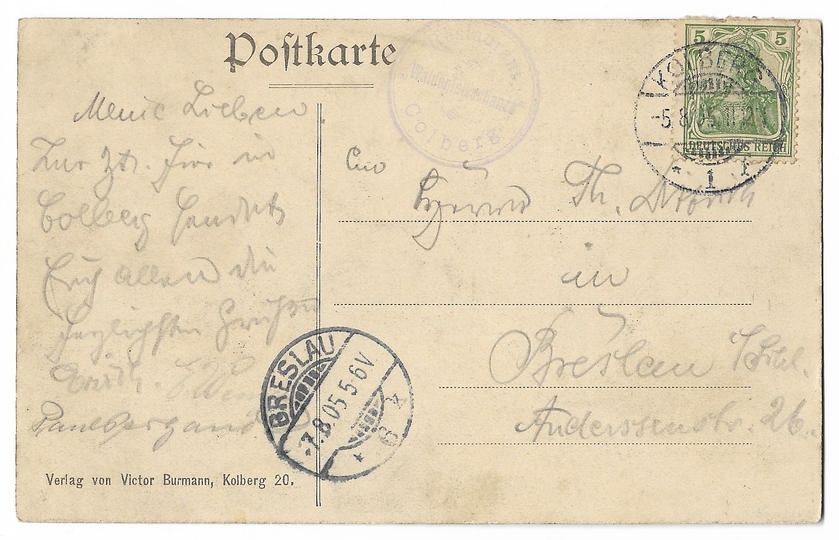 Postkarte
Restaurant
"Waldenfelsschanze"
Colberg
KOLBERG
-5.8.05. 11-12V
* 1 r
5 5
DEUTSCHES REICH
Meine Lieben
Zur Zt. hier in
Colberg sendet
Euch allen die
herzlichsten Grüße
An
Herrn Th.
in
Breslau I/Schl.
Anderssenstr. 26.
BRESLAU
-7.8.05 5-6V
* 6 z
Verlag von Victor Burmann, Kolberg 20.